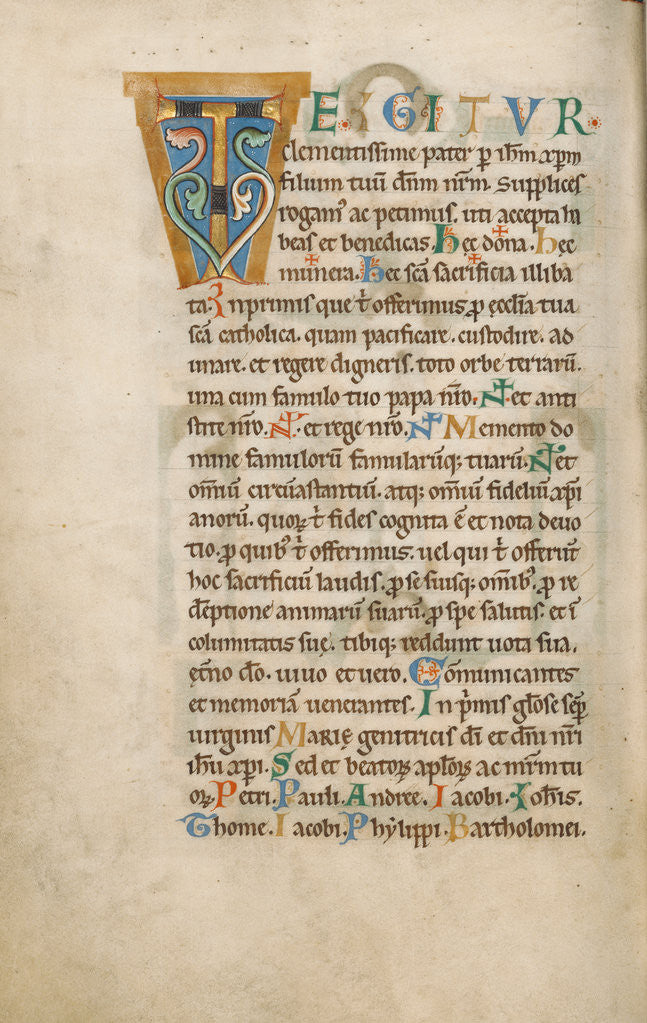 TE IGITUR
clementissime pater p̄ ih̄m xp̄m
filium tuū dn̄m nr̄m. Supplices
rogam⁹ ac petimus. uti accepta ha
beas et benedicas. hęc dona. hęc
munera. hęc scā sacrificia illiba
ta. Inprimis que t̄ offerimus ꝓ ecclīa tua
scā catholica. quam pacificare. custodire. ad
unare. et regere digneris. toto orbe terrarū.
una cum famulo tuo papa nr̄o. N̄. et anti
stite nr̄o. N̄. et rege nr̄o. N̄ Memento do
mine famulorū famularūq; tuarū. N̄ et
omiū circūastantiū. atq; omiū fideliū xp̄i
anorū. quoꝝ t̄ fides cognita ē et nota deuo
tio. ꝓ quib⁹ t̄ offerimus. uel qui t̄ offerūt
hoc sacrificiū laudis. ꝓ se suisq; omīb⁹. ꝓ re
dēptione animarū suarū. ꝓ spe salutis. et ī
columitatis suę. tibiq; reddunt uota sua.
ęt̄no dō. uiuo et uero. Cōmunicantes
et memoriā uenerantes. In p̄mis gl̄ose sēp̄
uirginis MARIĘ genitricis dī et dn̄i nr̄i
ih̄u xp̄i. Sed et beatoꝝ apl̄oꝝ ac mr̄m tu
oꝝ. Petri. Pauli. Andree. Iacobi. Ioh̄is.
Thome. Iacobi. Phylippi. Bartholomei.